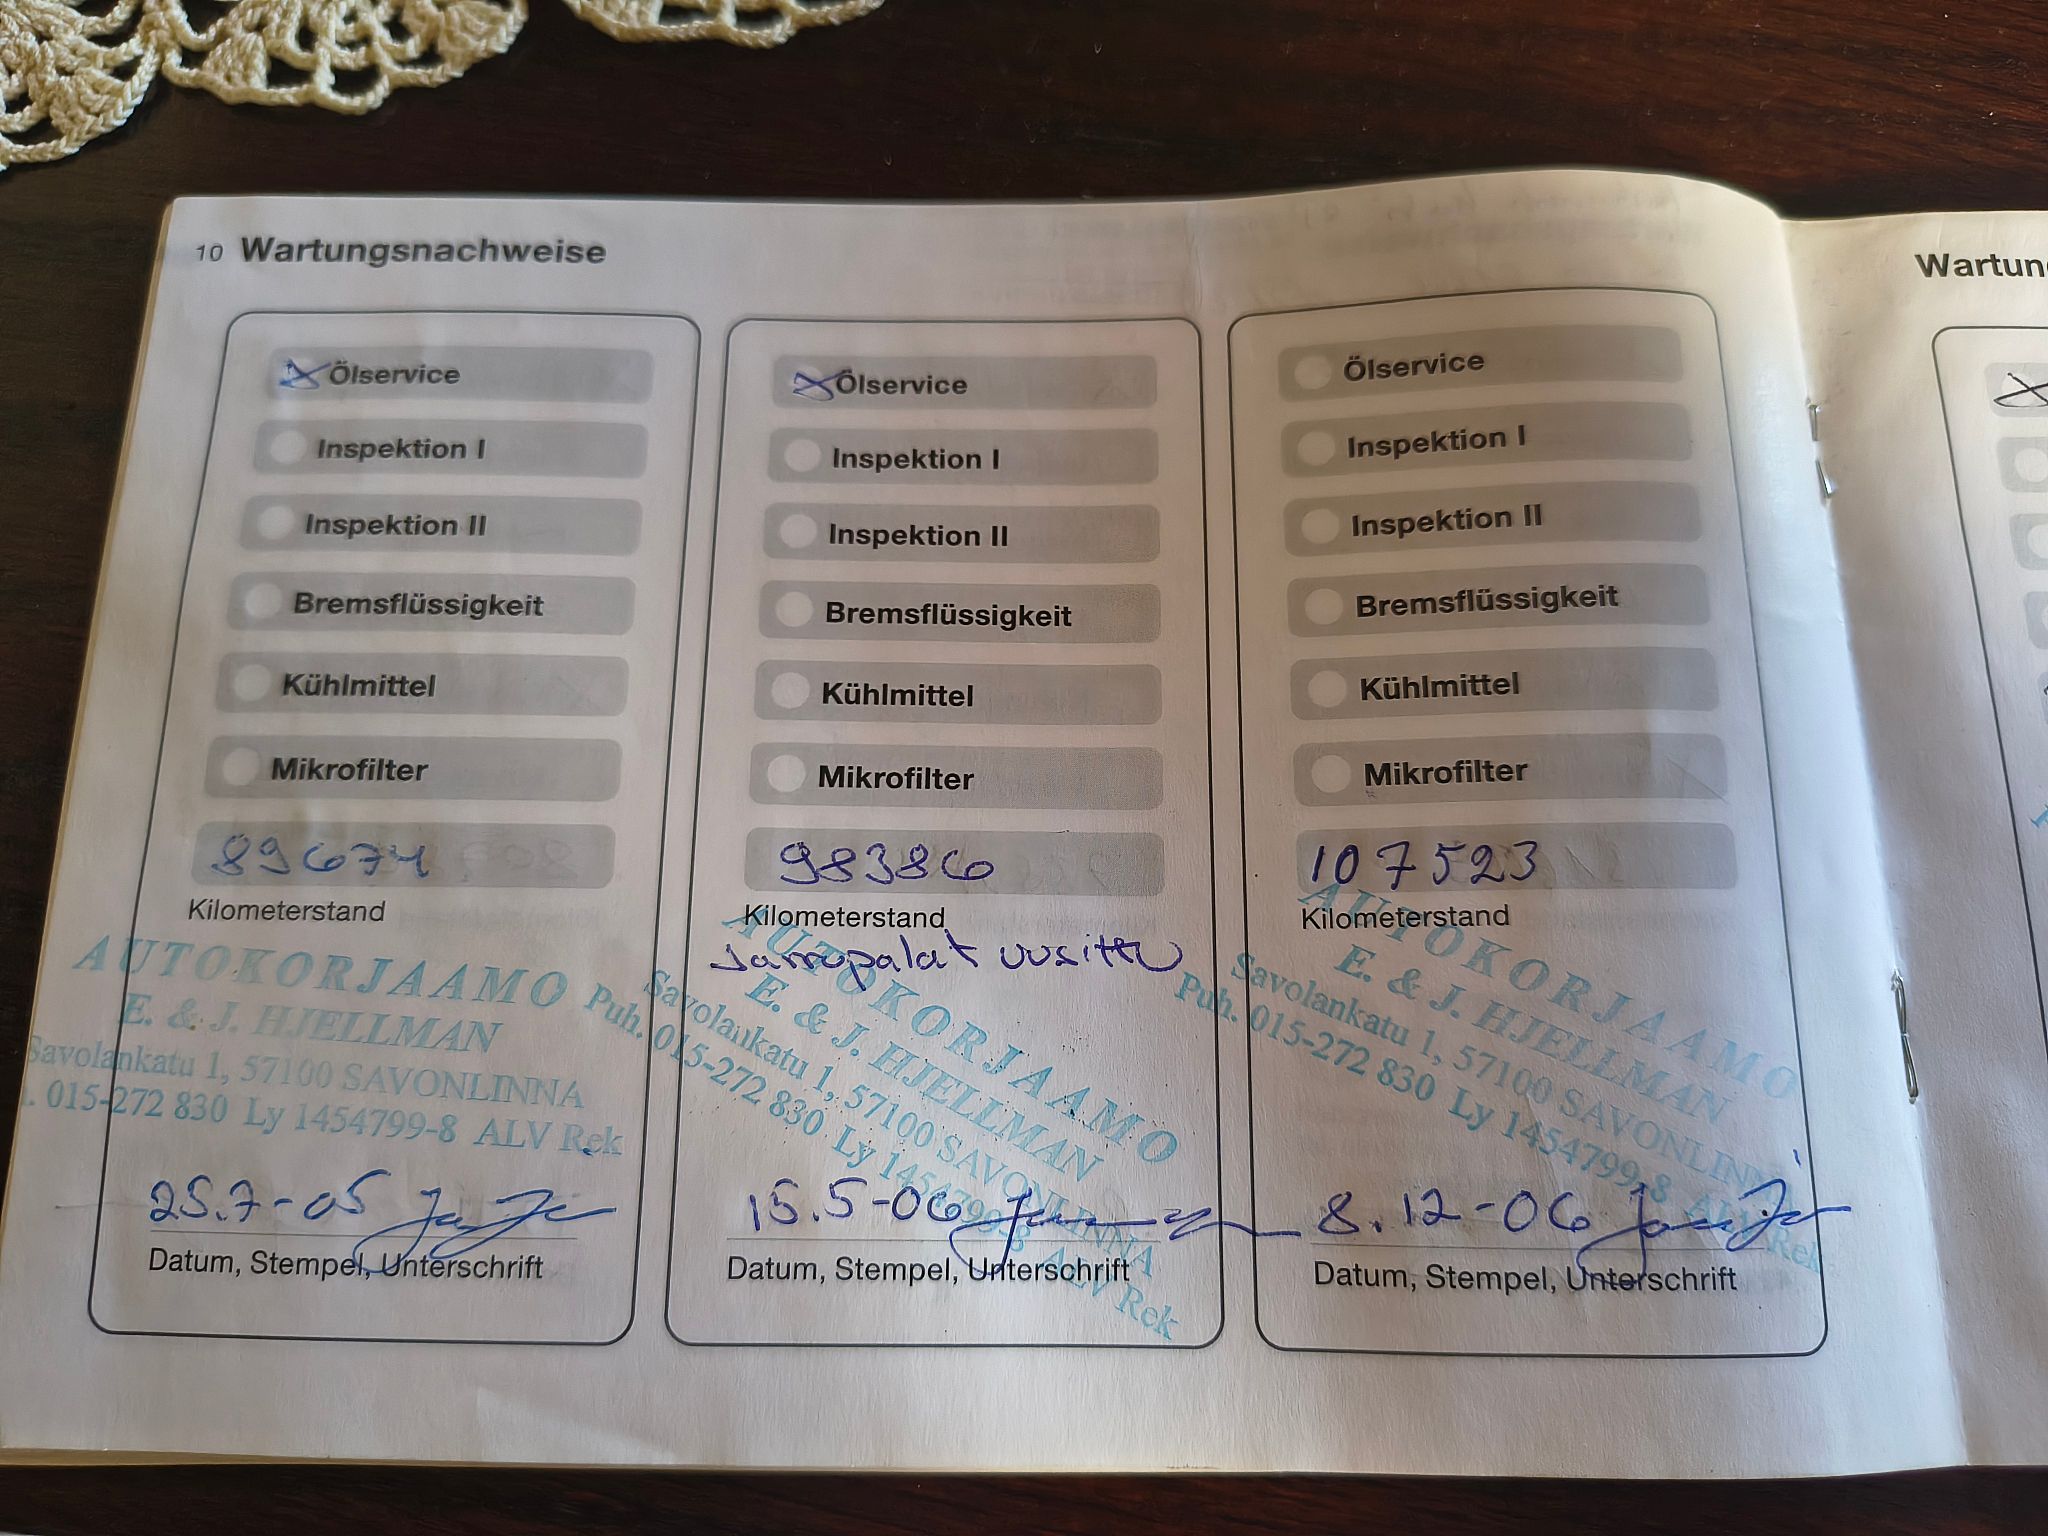 10 Wartungsnachweise
Ölservice
Inspektion I
Inspektion II
Bremsflüssigkeit
Kühlmittel
Mikrofilter
89674
Kilometerstand
AUTOKORJAAMO
E. & J. HJELLMAN
Savolankatu 1, 57100 SAVONLINNA
. 015-272 830 Ly 1454799-8 ALV Rek
25.7-05
Datum, Stempel, Unterschrift
Ölservice
Inspektion I
Inspektion II
Bremsflüssigkeit
Kühlmittel
Mikrofilter
98386
Kilometerstand
Jarropalat uusittu
AUTOKORJAAMO
E. & J. HJELLMAN
Savolankatu 1, 57100 SAVONLINNA
Puh. 015-272 830 Ly 1454799-8 ALV Rek
15.5-06
Datum, Stempel, Unterschrift
Ölservice
Inspektion I
Inspektion II
Bremsflüssigkeit
Kühlmittel
Mikrofilter
107523
Kilometerstand
AUTOKORJAAMO
E. & J. HJELLMAN
Savolankatu 1, 57100 SAVONLINNA
Puh. 015-272 830 Ly 1454799-8 ALV Rek
8.12-06
Datum, Stempel, Unterschrift
Wartun